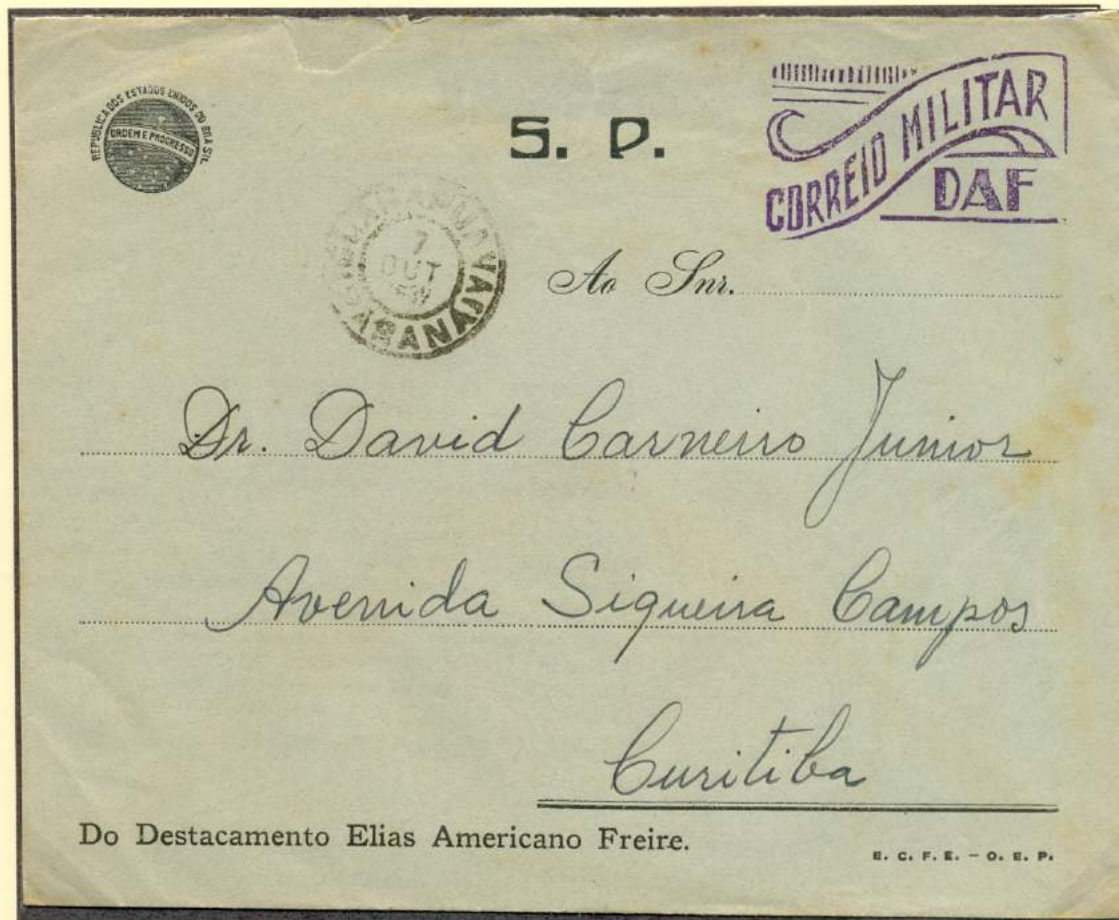 REPUBLICA DOS ESTADOS UNIDOS DO BRASIL
ORDEM E PROGRESSO
S. P.
CORREIO MILITAR
DAF
7
OUT
PARANÁ
Ao Snr.
Dr. David Carneiro Junior
Avenida Siqueira Campos
Curitiba
Do Destacamento Elias Americano Freire.
E. C. F. E. - O. E. P.